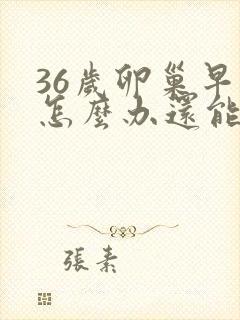 36歲卵巢早
怎麼办還能
張素